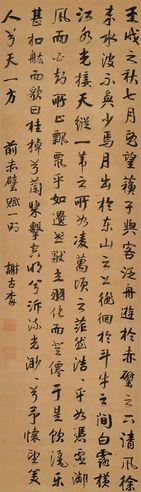 壬戌之秋七月既望蘇子與客泛舟遊於赤壁之下清風徐
來水波不興少焉月出於東山之上徘徊於斗牛之間白露橫
江水光接天縱一葦之所如凌萬頃之茫然浩浩乎如馮虛御
風而不知所止飄飄乎如遺世獨立羽化而登僊于是飲酒樂
甚扣舷而歌曰桂棹兮蘭槳擊空明兮泝流光渺渺兮予懷望美
人兮天一方
前赤壁賦一
謝古